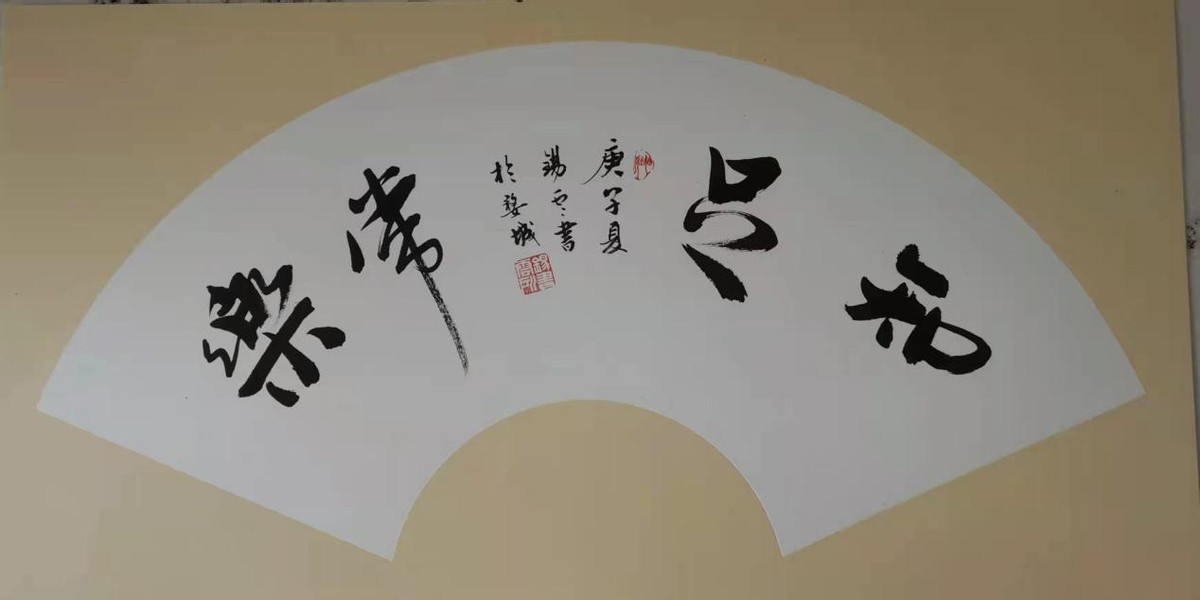 知足常樂
庚子夏
錫書
於婺城